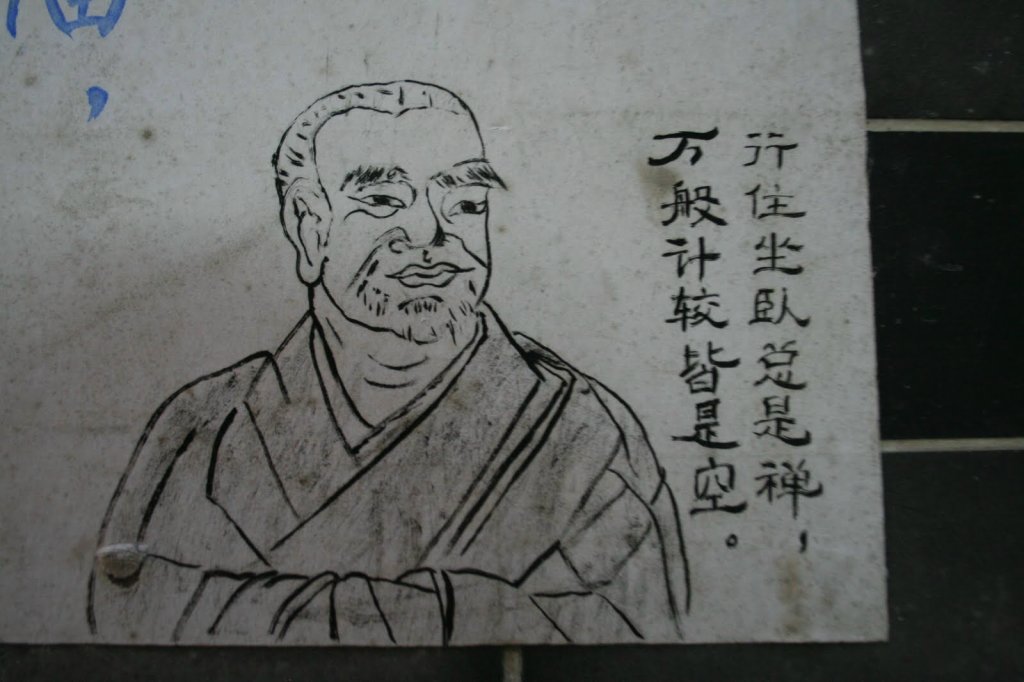 行住坐臥总是禅，
万般计较皆是空。